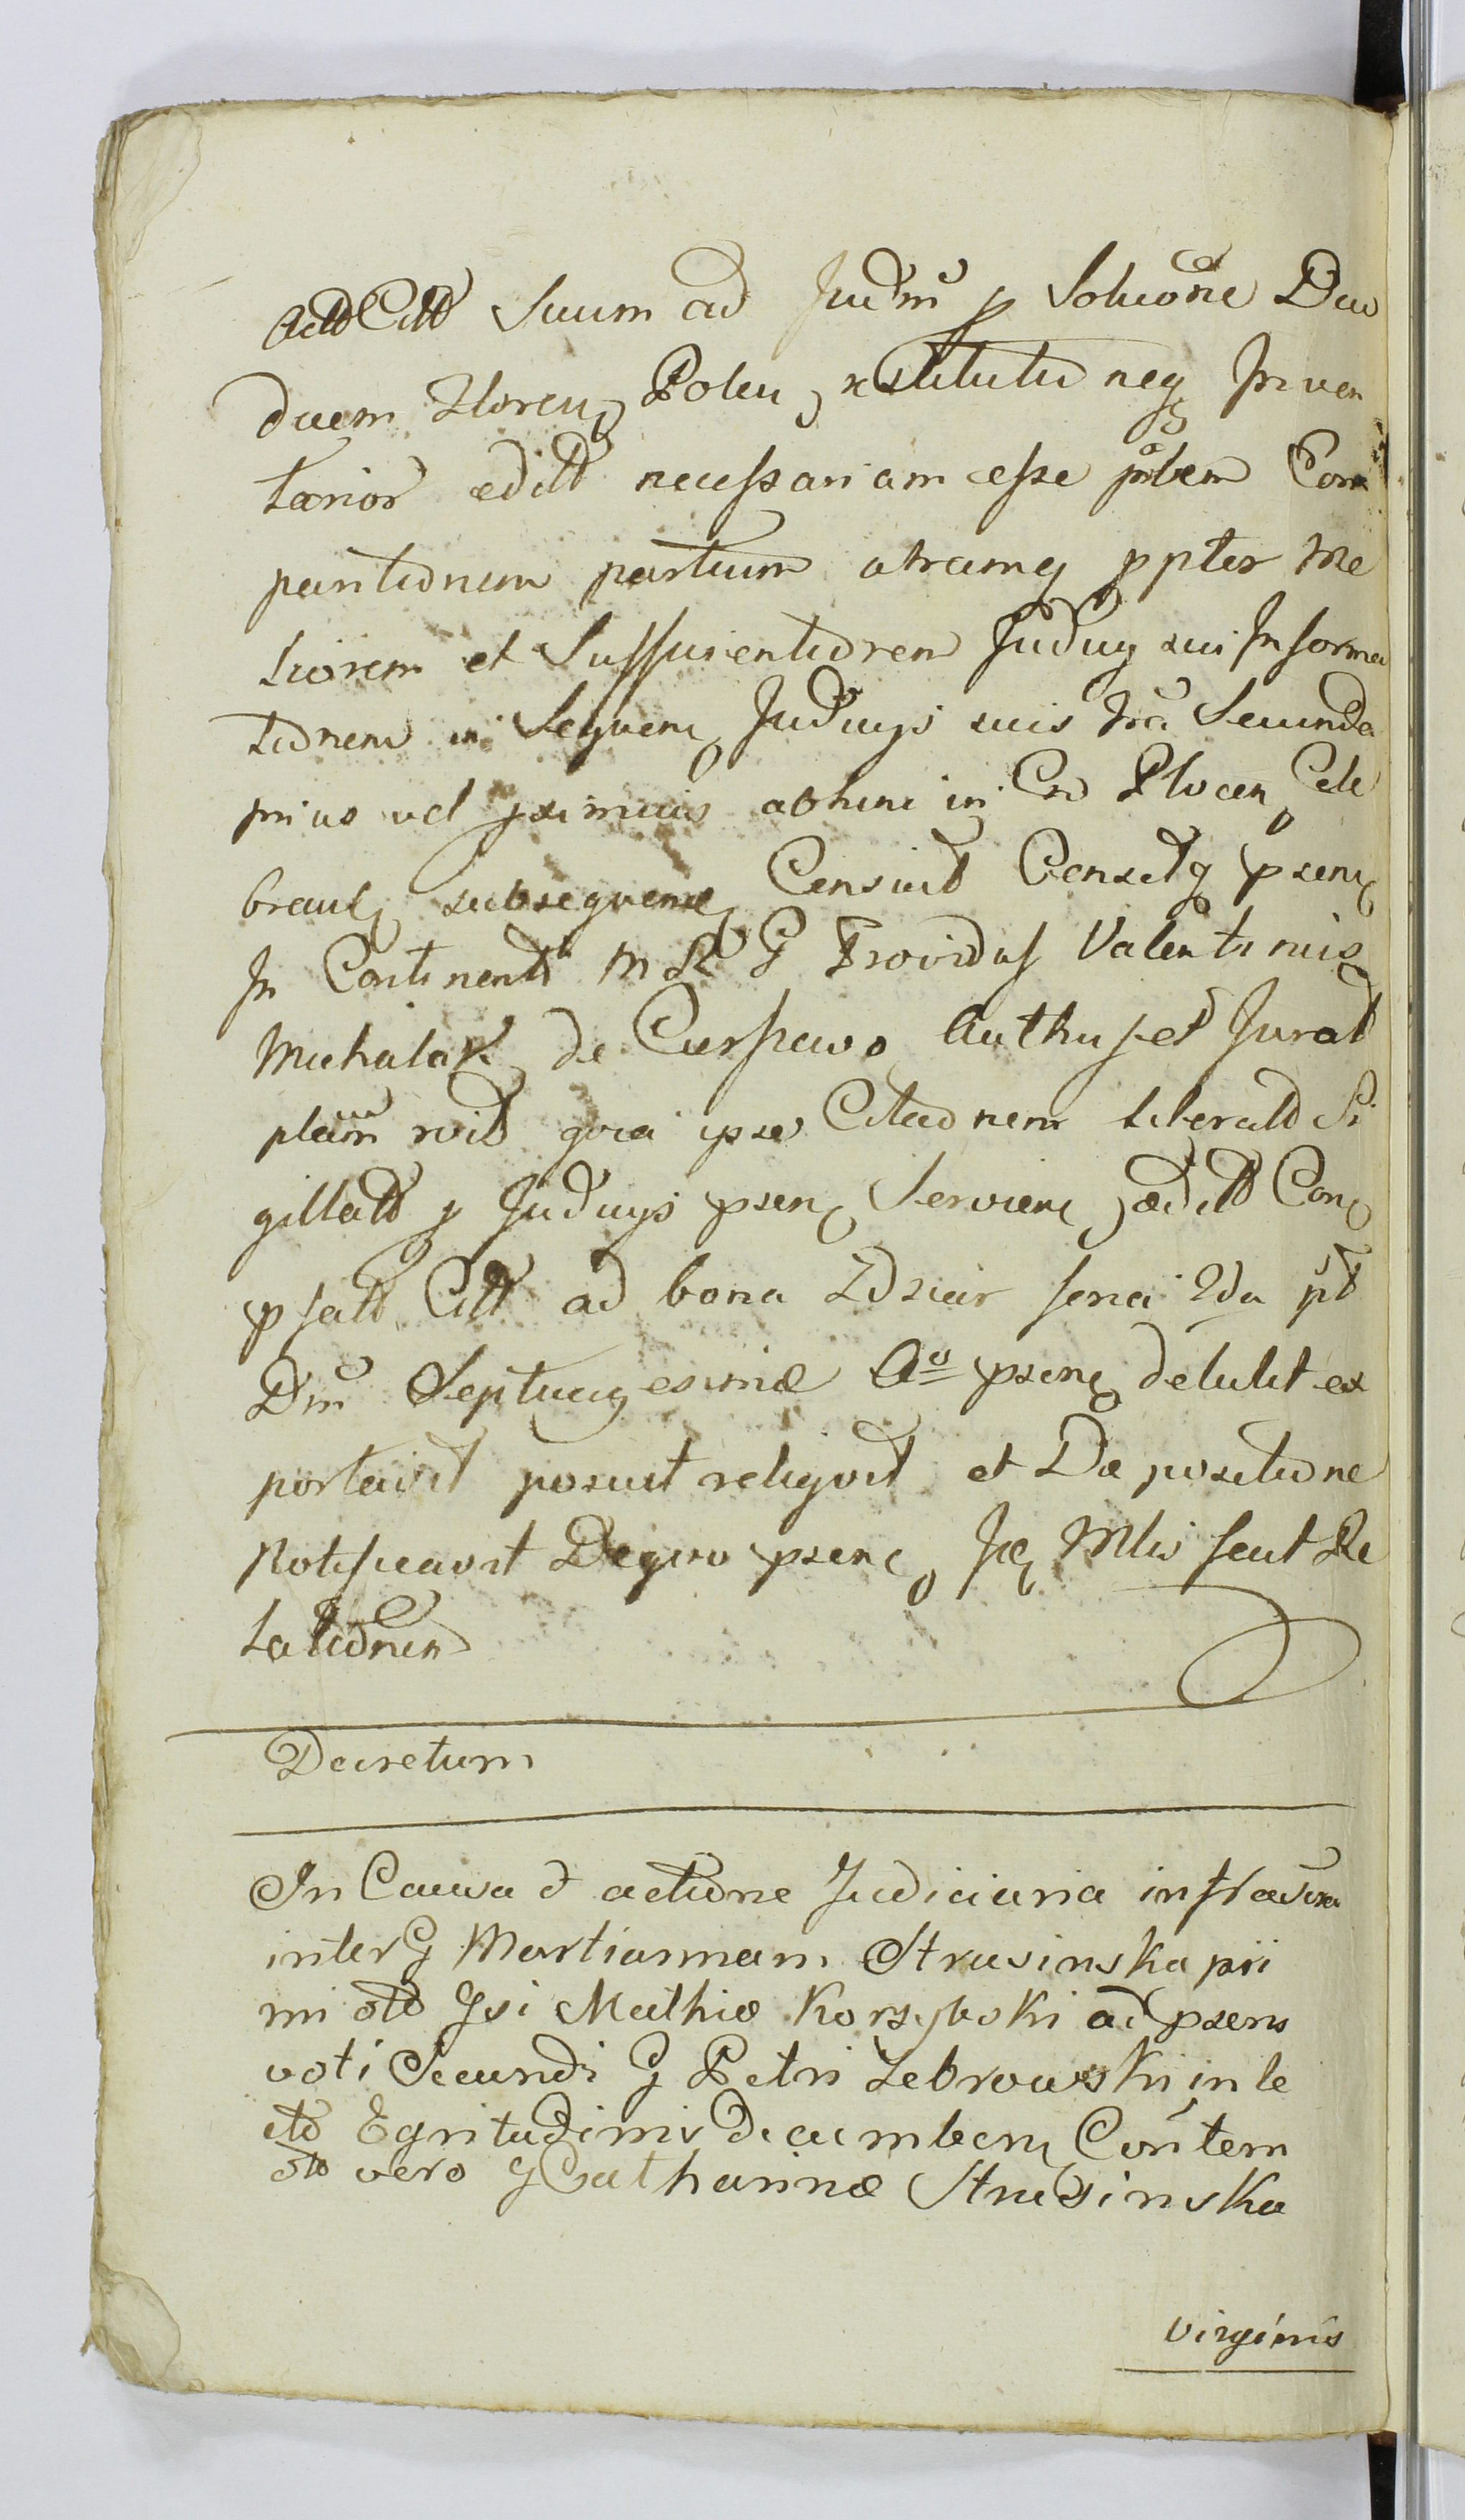 Citt Suum ad Judm̃ p Solucõne Duo
decem Floreng Polen, restitutio neq Inven
tarior edilt necessariam esse prbem Com
paritionem partium utramq ppter Me
liorem et Sufficientiorem Judicy sui Informa
tionem in Sequen Judicys suis tra Secunda
prius vel pximius abhinc in Cro Plocen Cele
brand subsequens Censuit Censetq psen
In Continenti M R G Providus Valentinus
Michalak de Cierszewo Authus et Jurat
plam roib quia ipse Citationem literalt Si
gillatt p Judicys psen Servien, edilt Con
psatt Citt ad bona Zdziar feria 2da pt
Dm̃ Septuagesimæ Ao psens detulit ex
portavit posuit reliquit et De positione
Notificavit De quo psens, Jc Mlis facit Re
lationem
Decretum
In Causa & actione Judiciaria infrascra
inter G Martiannam Strusinska pri
mi oto Gsi Mathiæ Korzybski ad psens
voti Secundi G Petri Zebrowski in le
cto Egritudinis decumben Contem
oto vero G Catharinæ Strusinska
virginis